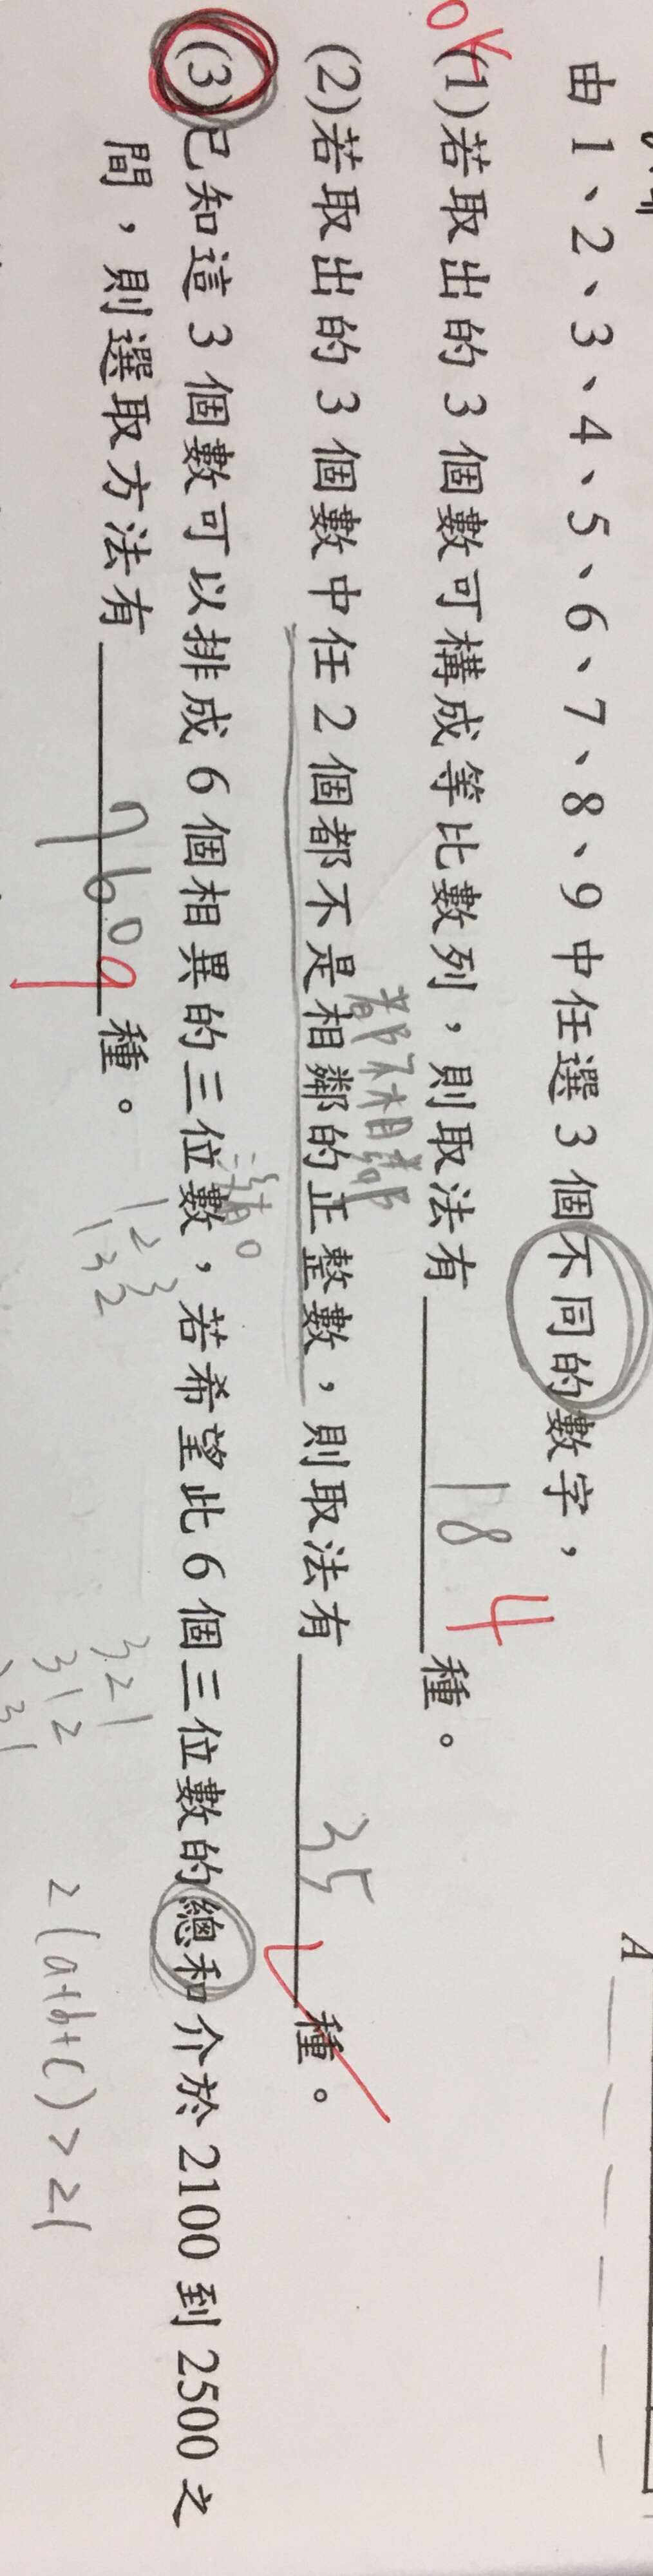 由 1、2、3、4、5、6、7、8、9 中任選 3 個不同的數字，
OK
(1)若取出的 3 個數可構成等比數列，則取法有 18 4 種。
都不相鄰
(2)若取出的 3 個數中任 2 個都不是相鄰的正整數，則取法有 35 種。
(3)已知這 3 個數可以排成 6 個相異的三位數，若希望此 6 個三位數的總和介於 2100 到 2500 之
間，則選取方法有 760 9 種。
1 2 3
1 3 2
3 2 1
3 1 2
2(a+b+c) > 21
A